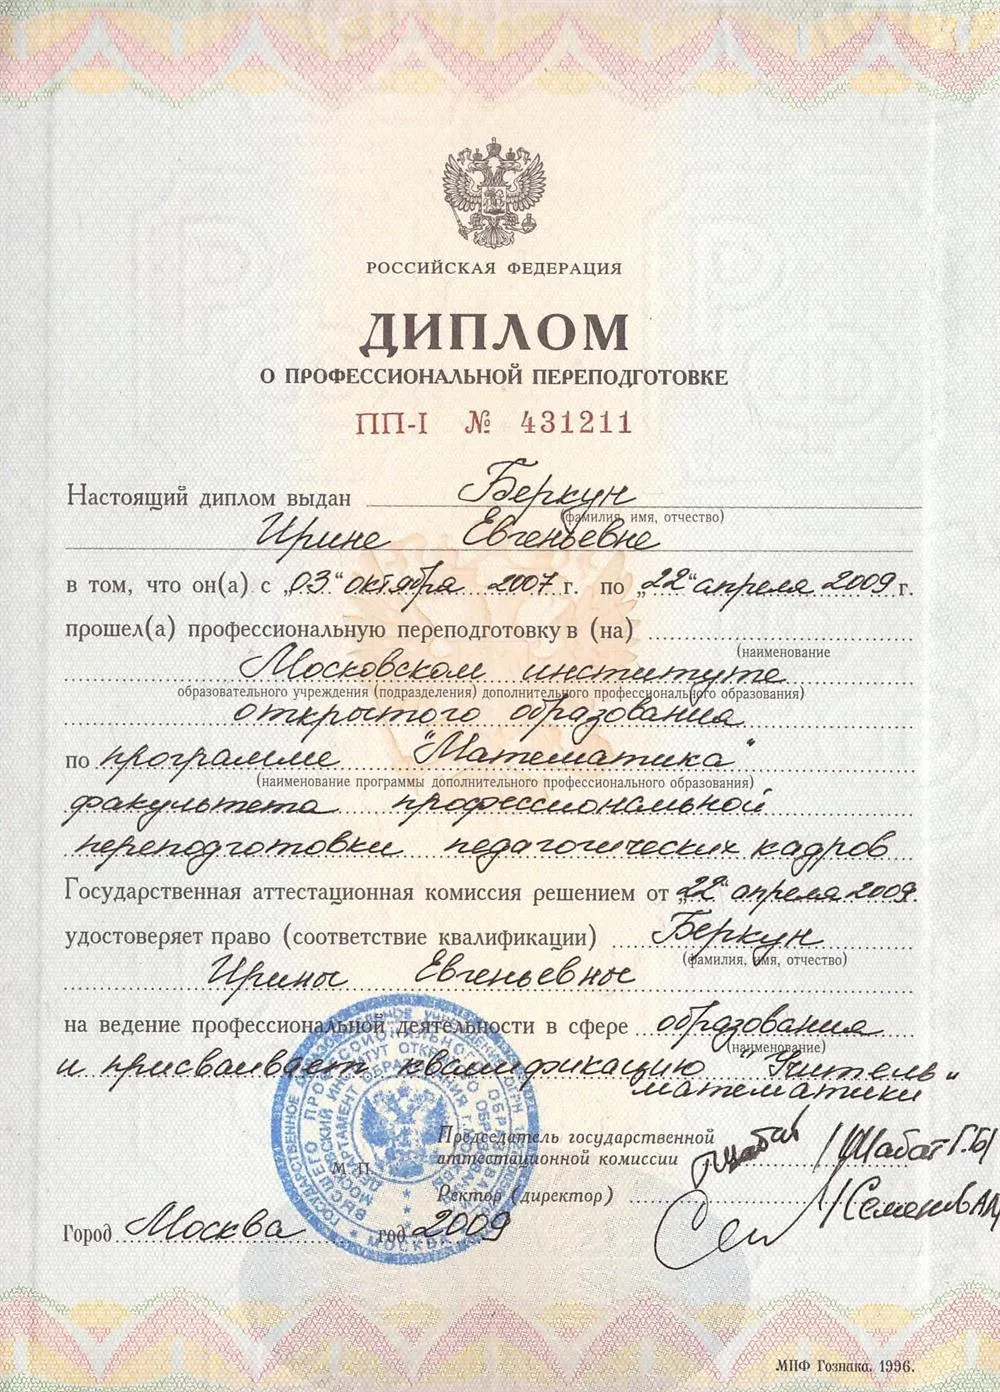 РОССИЙСКАЯ ФЕДЕРАЦИЯ
ДИПЛОМ
О ПРОФЕССИОНАЛЬНОЙ ПЕРЕПОДГОТОВКЕ
ПП-I № 431211
Настоящий диплом выдан Беркун
(фамилия, имя, отчество)
Ирине Евгеньевне
в том, что он(а) с „03“ октября 2007 г. по „22“ апреля 2009 г.
прошел(а) профессиональную переподготовку в (на)
(наименование
Московском институте
образовательного учреждения (подразделения) дополнительного профессионального образования)
открытого образования
по программе "Математика"
(наименование программы дополнительного профессионального образования)
факультета профессиональной
переподготовки педагогических кадров
Государственная аттестационная комиссия решением от „22“ апреля 2009.
удостоверяет право (соответствие квалификации) Беркун
(фамилия, имя, отчество)
Ирины Евгеньевны
на ведение профессиональной деятельности в сфере образования
(наименование)
и присваивает квалификацию "Учитель
математики"
Председатель государственной
аттестационной комиссии /Шабат Г.Б/
М.П.
Ректор (директор) /Семенов А.Л/
Город Москва год 2009
МОСКВА
МПФ Гознака. 1996.